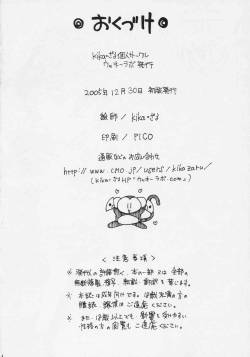 おくづけ
kika・ざる個人サークル
ウッキーラボ発行
2005年12月30日 初版発行
編部 / kika・ざる
印刷 / PICO
通販などのお問い合わせ
http://www.cmo.jp/users/kikazaru/
(kika・ざるHP "ウッキーラボ.com")
< 注意事項 >
※ 発行人の許可無く、本の一部又は全部の
無断転載、複写、転載、翻訳を禁じます。
※ 本誌は成年向けです。18歳未満の方の
購読、購買はご遠慮ください。
※ また18歳以上でも、影響を受けやすい
性格の方の閲覧もご遠慮ください。